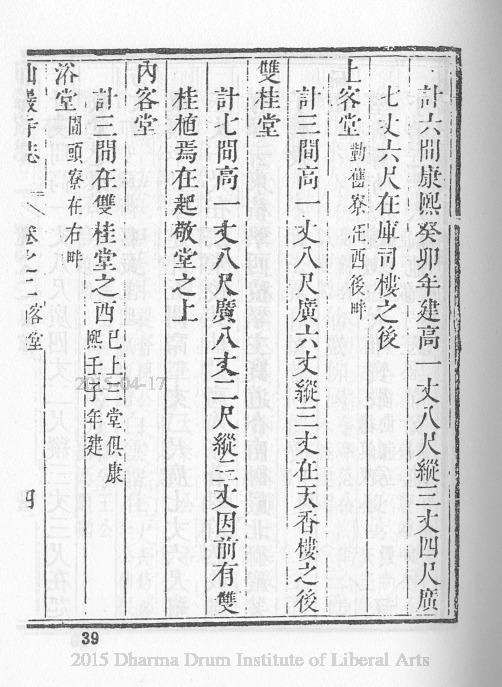 計六間康熙癸卯年建高一丈八尺縱三丈四尺廣
七丈六尺在庫司樓之後
上客堂 勤舊寮在西後畔
計三間高一丈八尺廣六丈縱三丈在天香樓之後
雙桂堂
計七間高一丈八尺廣八丈二尺縱三丈因前有雙
桂植焉在起敬堂之上
內客堂
計三間在雙桂堂之西 已上三堂俱康
熙壬子年建
浴堂 圊頭寮在右畔
寺志 卷之二 客堂 四
2015-04-17
39
2015 Dharma Drum Institute of Liberal Arts